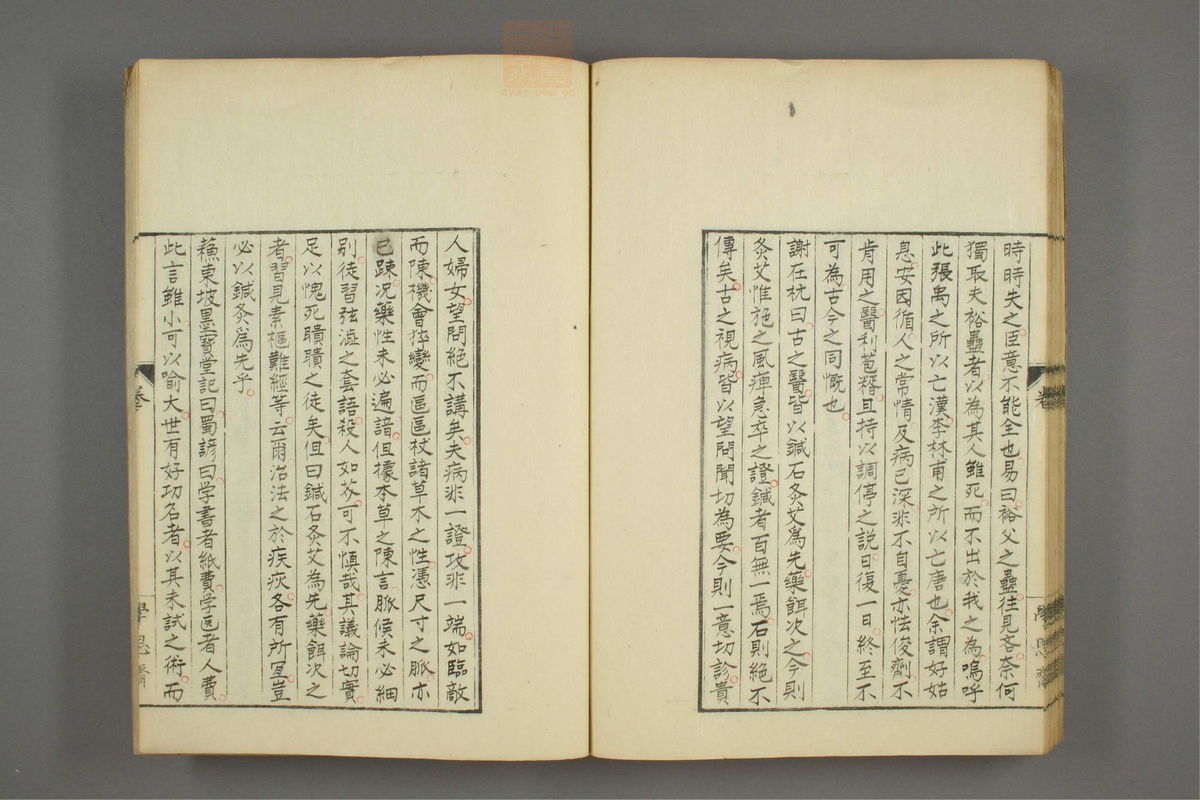 時時失之臣意不能全也易曰裕父之蠱往見吝奈何
獨取夫裕蠱者以為其人雖死而不出於我之為嗚呼
此張禹之所以亡漢李林甫之所以亡唐也余謂好姑
息安因循人之常情及病已深非不自憂亦怯俊劑不
肯用之醫利苞糈且持以調停之說日復一日終至不
可為古今之同慨也
謝在杭曰古之醫皆以鍼石灸艾爲先藥餌次之今則
灸艾惟施之風痺急卒之證鍼者百無一焉石則絕不
傳矣古之視病皆以望問聞切為要今則一意切診貴
人婦女望問絕不講矣夫病非一證攻非一端如臨敵
而陳機會猝變而區區杖諸草木之性憑尺寸之脈亦
已踈况藥性未必遍諳但據本草之陳言脈候未必細
別徒習弦澁之套語殺人如芥可不慎哉其議論切實
足以愧死聵聵之徒矣但曰鍼石灸艾為先藥餌次之
者習見素樞難經等云爾治法之於疾疢各有所宜豈
必以鍼灸爲先乎
蘓東坡墨寶堂記曰蜀諺曰学書者紙費学医者人費
此言雖小可以喻大世有好功名者以其未試之術而
學思齋
zysj.com.cn